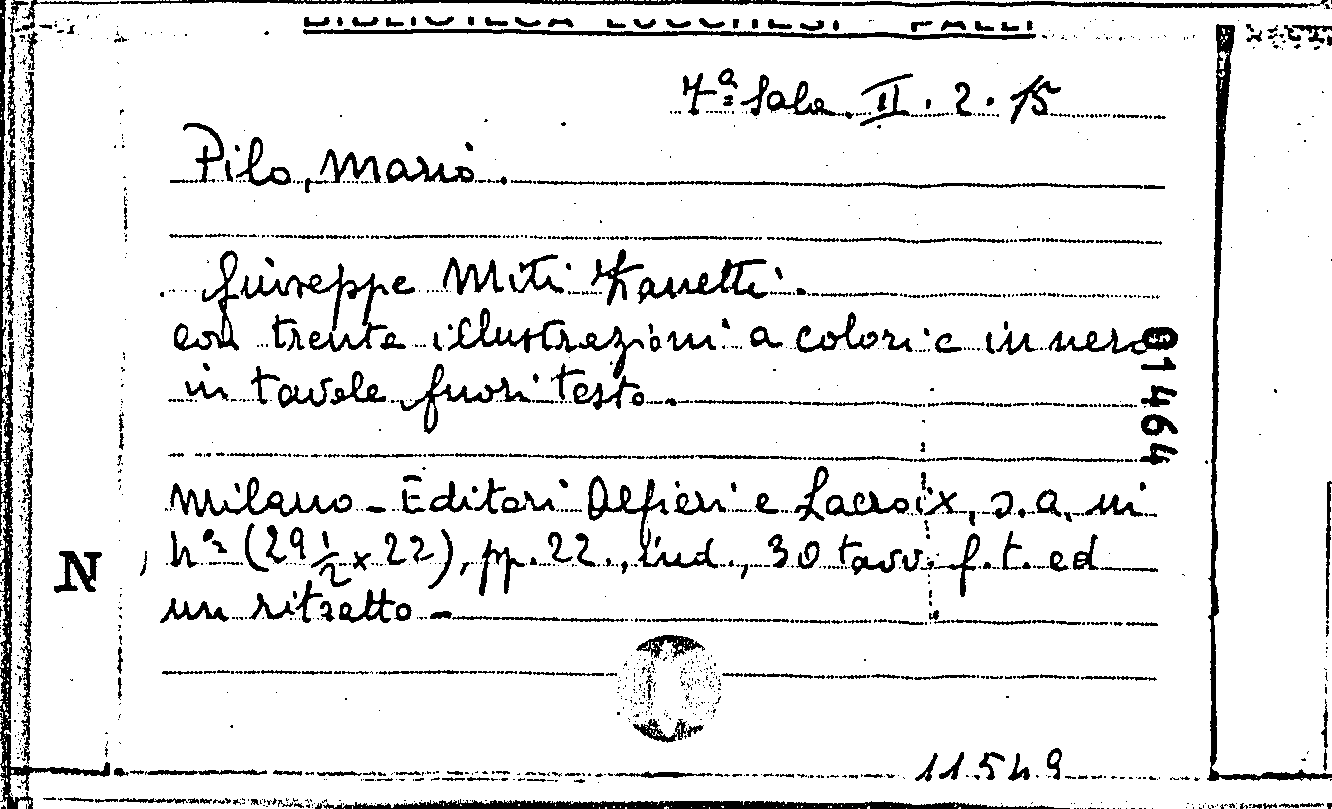 BIBLIOTECA LUCCHESI - PALLI
4ª Sala. II. 2. 15
Pilo, Mario.
Giuseppe Miti Zanetti.
con trente illustrazioni a colori e in nero
in tavole fuori testo.
01464
Milano - Editori Alfieri e Lacroix, s.a, in
4º (29 1/2 x 22), pp. 22., ind., 30 tavv. f.t. ed
un ritratto -
N
11549